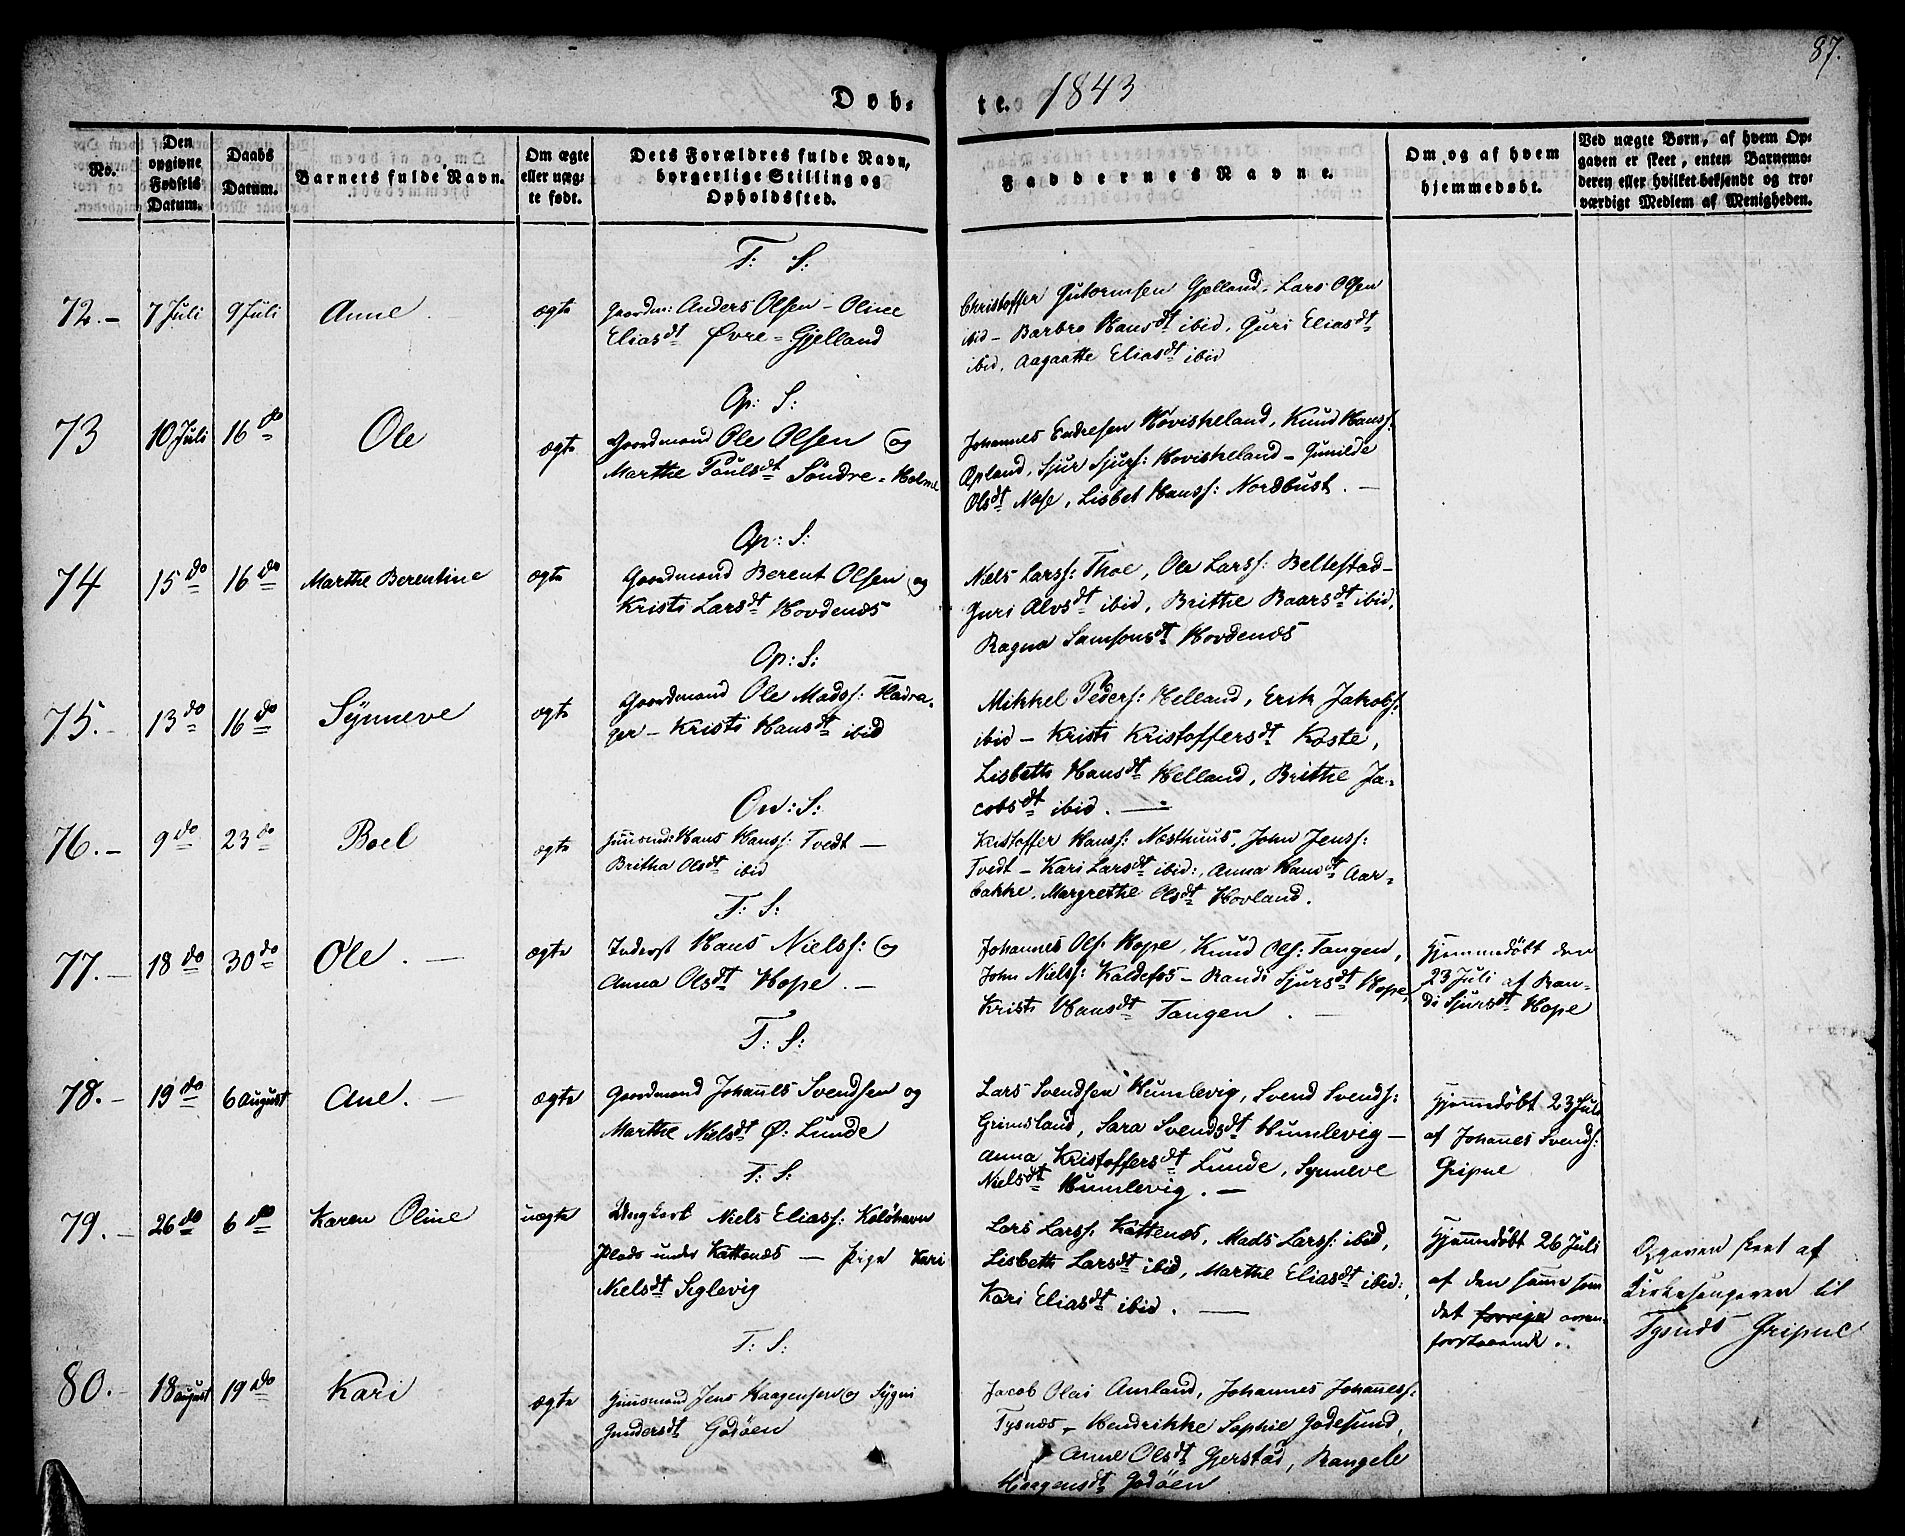 87.
Døb-
te. 1843
No.
Den opgivne Fødsels Datum.
Daabs Datum.
Barnets fulde Navn.
Om ægte eller uægte født.
Dets Forældres fulde Navn, borgerlige Stilling og Opholdssted.
Faddernes Navne.
Om og af hvem hjemmedøbt.
Ved uægte Børn, af hvem Opgaven er skeet, enten Barnemoderen eller hvilket bekjendt og troværdigt Medlem af Menigheden.
T: S:
72.- 7 Juli 9 Juli Anne. ægte
Gaardm: Anders Olsen - Oline
Eliasdt Øvre-Gjelland
Christoffer Gutormsen Gjelland, Lars Olsen
ibid - Barbro Hansdt ibid, Guri Eliasdt
ibid, Aagaatte Eliasdt ibid
Op: S:
73 10 Juli 16 do Ole ægte
Gaardmand Ole Olsen og
Marthe Paulsdt Søndre-Holme
Johannes Endresen Hovisheland, Knud Hanss:
Opland, Sjur Sjurs: Hovisheland - Gunilde
Olsdt Nase, Lisbet Hanss: Nordbust. -
Op: S:
74 15 do 16 do Marthe Berentine ægte
Gaardmand Berent Olsen og
Kristi Larsdt Hovdenæs
Niels Larss: Thoe, Ole Larss: Beltestad -
Guri Alvsdt ibid, Brithe Baarsdt ibid,
Ragna Samsonsdt Hovdenæs
Op: S:
75.- 13 do 16 do Synneve ægte
Gaardmand Ole Madss: Fladra-
ger - Kristi Hansdt ibid
Mikkel Peders: Helland, Erik Jakobs:
ibid - Kristi Kristoffersdt Koste,
Lisbeth Hansdt Helland, Brithe Ja-
cobsdt ibid. -
On: S:
76.- 9 do 23 do Boel ægte
Huusmd: Hans Hanss: Tvedt -
Britha Olsdt ibid
Kristoffer Hanss: Næsthuus, John Jenss:
Tvedt - Kari Larsdt ibid:, Anna Hansdt Aar-
bakke, Margrethe Olsdt Hovland.
T: S:
77.- 18 do 30 do Ole. - ægte
Inderst Hans Nielss: og
Anna Olsdt Hope. -
Johannes Ols: Hope, Knud Ols: Tangen,
John Nielss: Kaldefos - Randi Sjursdt Hope,
Kristi Hansdt Tangen. -
Hjemmedøbt den
23 Juli af Ran-
di Sjursdt Hope
T: S:
78.- 19 do 6 August Ane. - ægte
Gaardmand Johannes Svendsen og
Marthe Nielsdt Ø: Lunde
Lars Svendsen Humlevig, Svend Svends:
Grimsland, Sara Svendsdt Humlevig -
Anna Kristoffersdt Lunde, Synneve
Nielsdt Humlevig. -
Hjemmedøbt 23 Juli
af Johannes Svends:
Gripne
T: S:
79.- 26 do 6 do Karen Oline uægte
Ungkarl Niels Eliass: Kolshavn
Plads under Kattenæs - Pige Kari
Nielsdt Siglevig
Lars Larss. Kattenæs, Mads Larss: ibid,
Lisbeth Larsdt ibid, Marthe Eliasdt ibid:,
Kari Eliasdt ibid. -
Hjemmedøbt 26 Juli
af den samme som
det forrige oven-
forstaaende.
Opgaven skeet af
Kirkesangeren til
Tysnæs Gripne
T: S:
80.- 18 August 19 do Kari ægte
Huusmand Jens Haagensen og Sygni
Gundersdt Godøen
Jacob Olai Amland, Johannes Johanness:
Tysnæs - Hendrikke Sophie Godesund,
Anne Olsdt Gjerstad, Rangele
Haagensdt Godøen